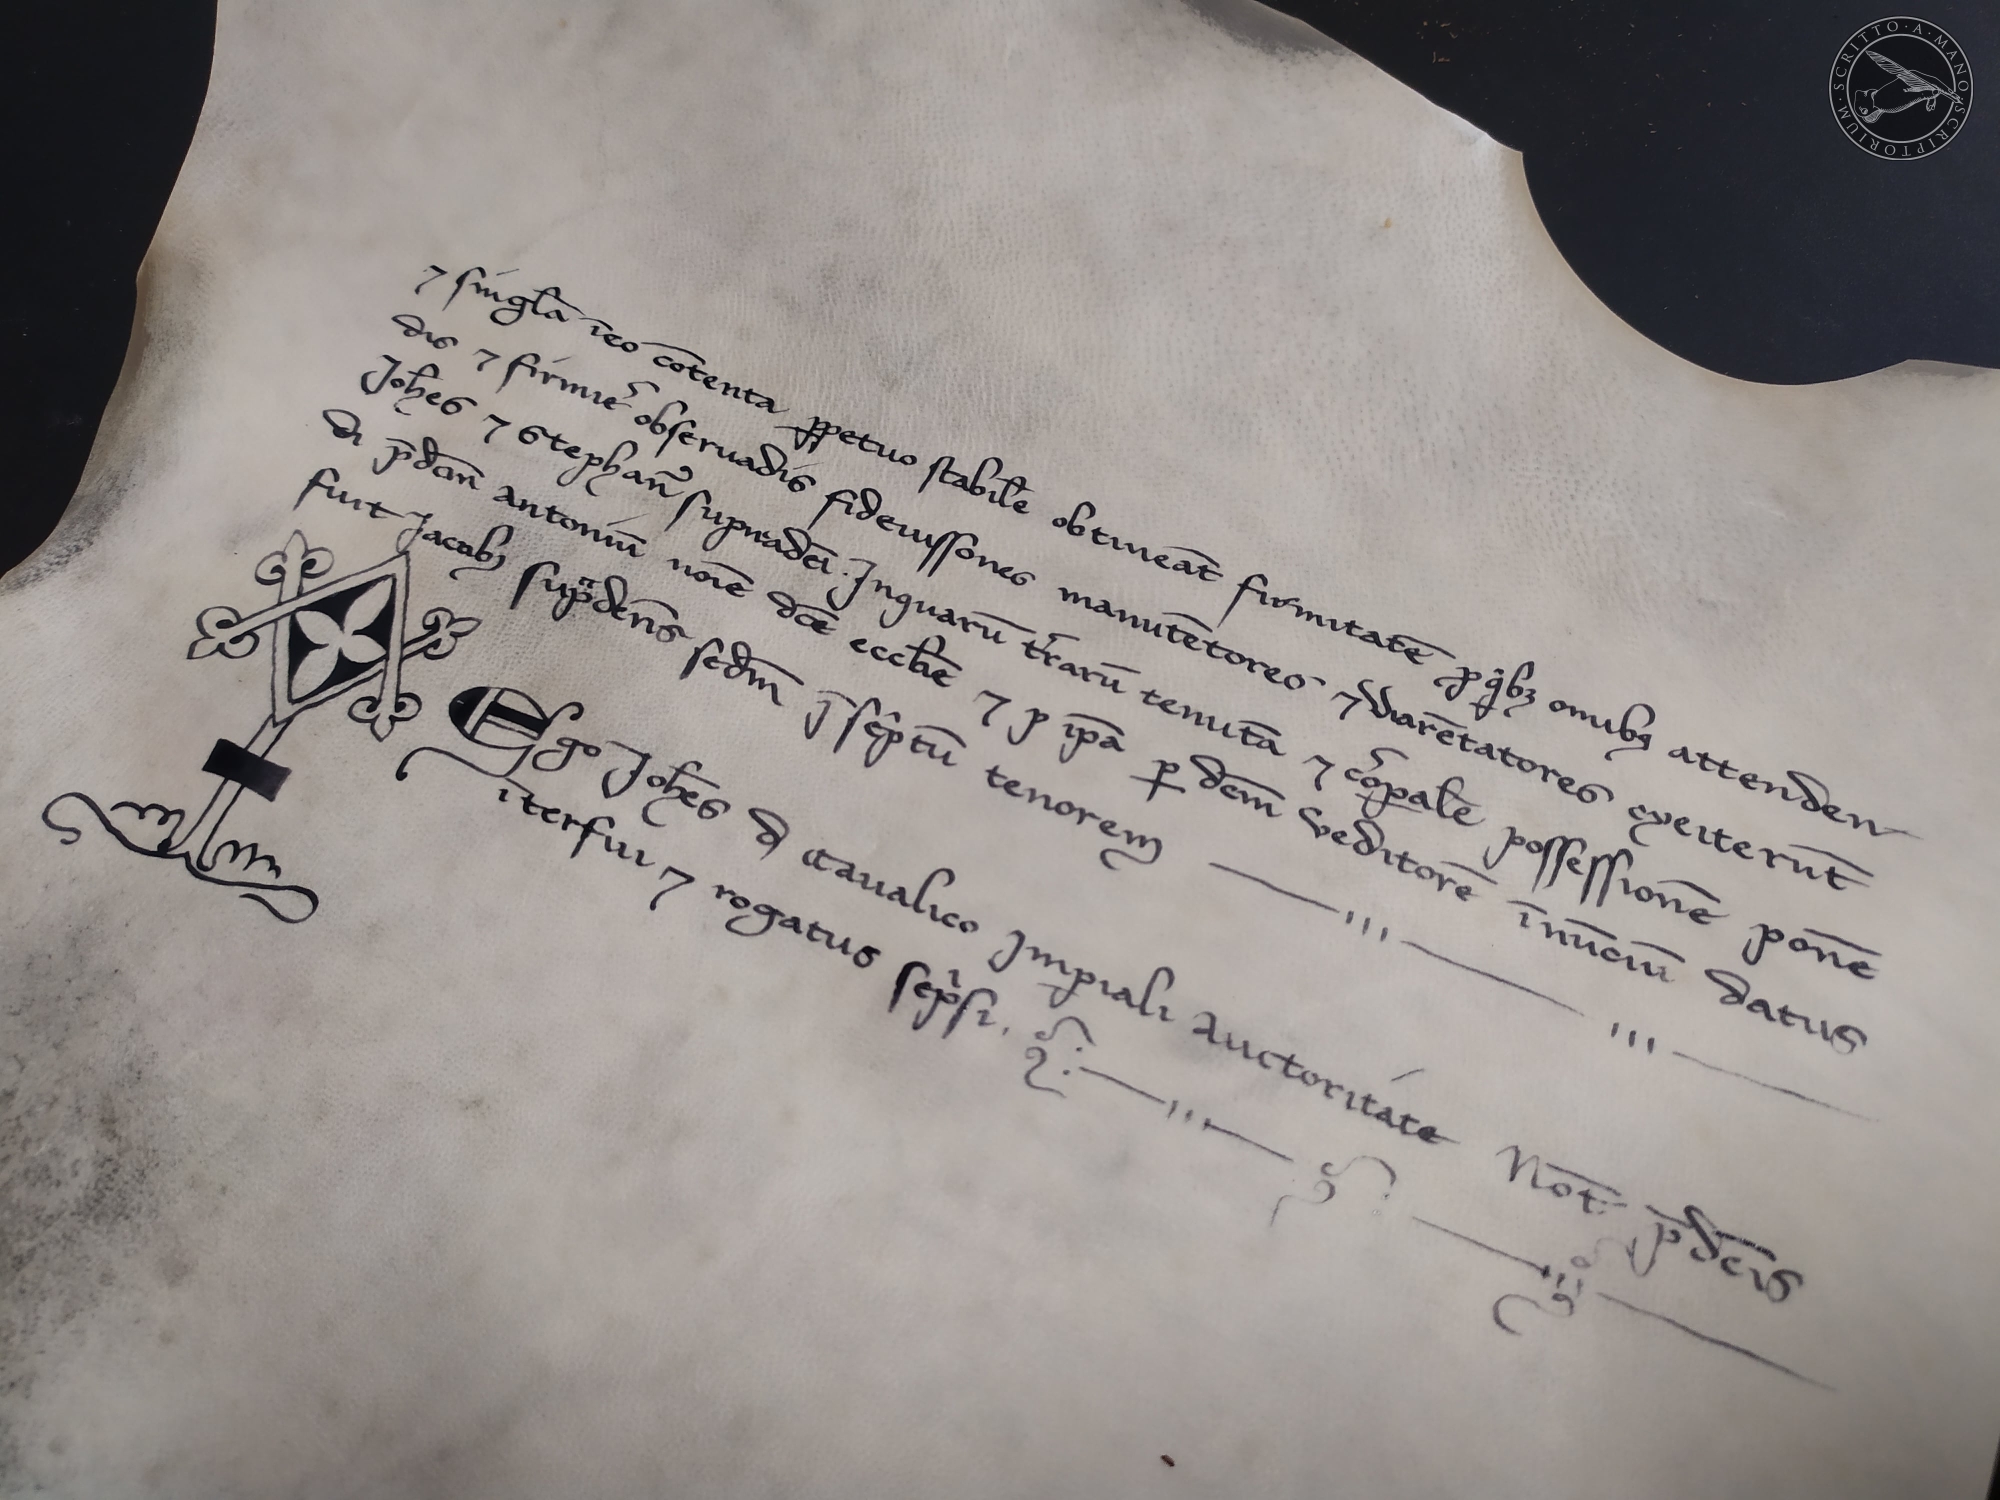 ⁊ singla ieo cōtenta ꝑpetuo stabile obtineāt firmitatē ꝑ qibꝫ omibꝫ attenden
dis ⁊ firmiē obseruādis fideiussores manutētores ⁊ diarētatores exeiterūt
Johes ⁊ Stephan supradci. Inguarū trarū tenutā ⁊ corpalē possessionē ponē
di p̄dcm antoniū noīe dce eccłie ⁊ p ipā ꝑ dcm veditorē inūciū datus
fuit Jacobꝫ supdens scdm j̄ scͥptū tenorem
Ego Johes đ caualico Jmpiali auctoritate Not p̄dcis
īterfui ⁊ rogatus scpͥsi.
SCRITTO · A · MANO · SCRIPTORIUM ·